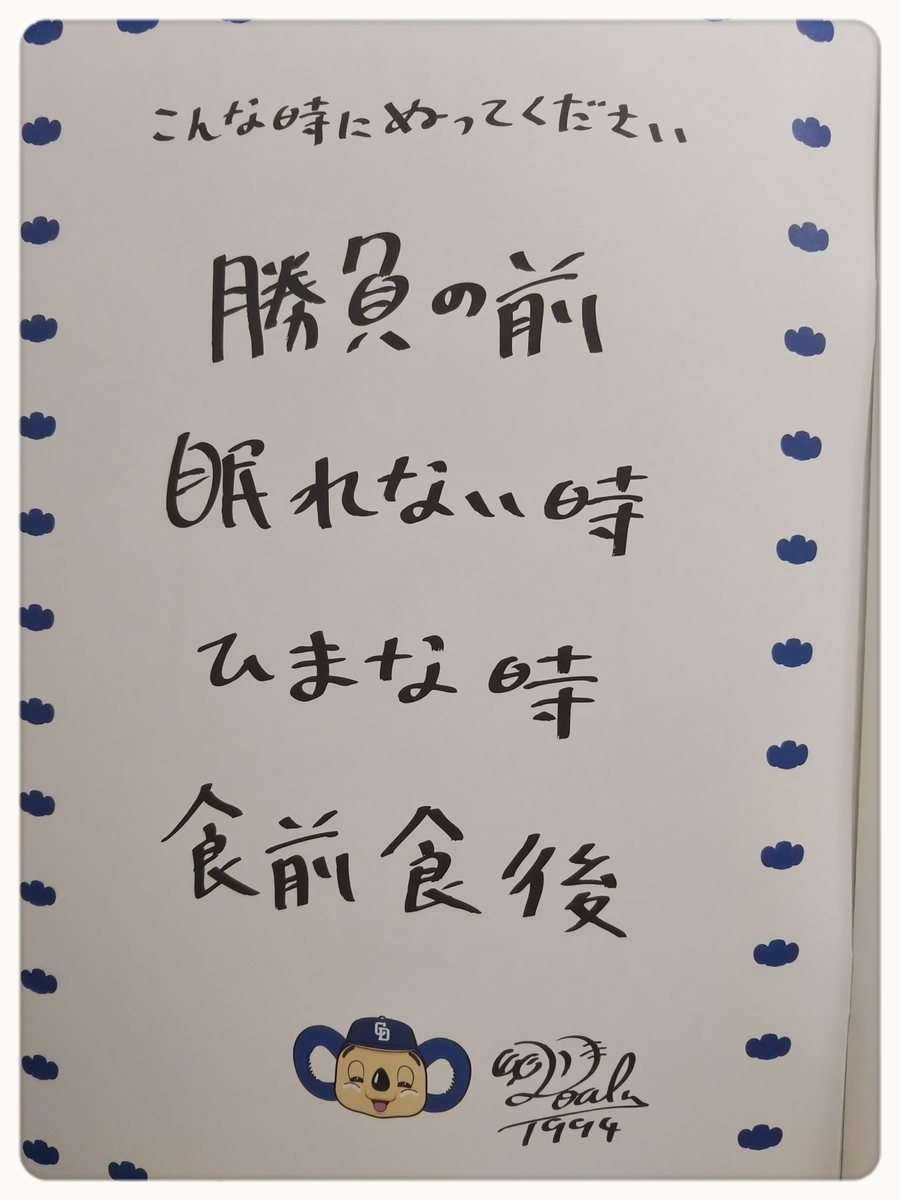 こんな時にぬってください
勝負の前
眠れない時
ひまな時
食前食後
CD
1994